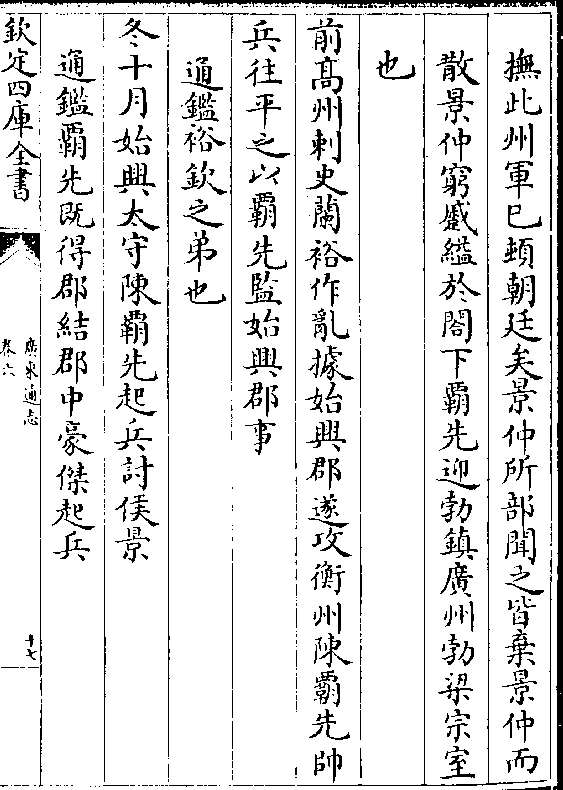 撫此州軍已頓朝廷矣景仲所部聞之皆棄景仲而
散景仲窮蹙縊於閤下霸先迎勃鎮廣州勃梁宗室
也
前髙州刺史蘭裕作亂據始興郡遂攻衡州陳霸先帥
兵往平之以霸先監始興郡事
通鑑裕欽之弟也
冬十月始興太守陳霸先起兵討侯景
通鑑霸先既得郡結郡中豪傑起兵
欽定四庫全書
廣東通志
卷六
十七